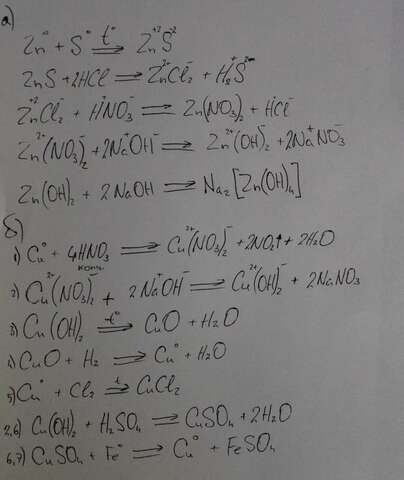 а)
Zn⁰ + S⁰ t°⇒ Zn⁺²S⁻²
ZnS + 2HCl ⇒ Zn²⁺Cl₂⁻ + H₂⁺S²⁻
Zn⁺²Cl₂⁻ + H⁺NO₃⁻ ⇒ Zn(NO₃)₂ + H⁺Cl⁻
Zn²⁺(NO₃)₂⁻ + 2Na⁺OH⁻ ⇒ Zn²⁺(OH)₂⁻ + 2Na⁺NO₃⁻
Zn(OH)₂ + 2NaOH ⇒ Na₂[Zn(OH)₄]
б)
1) Cu⁰ + 4HNO₃ конц. ⇒ Cu²⁺(NO₃)₂⁻ + 2NO₂↑ + 2H₂O
2) Cu²⁺(NO₃)₂⁻ + 2Na⁺OH⁻ ⇒ Cu²⁺(OH)₂⁻ + 2NaNO₃
3) Cu(OH)₂ t°⇒ CuO + H₂O
4) CuO + H₂ → Cu⁰ + H₂O
5) Cu⁰ + Cl₂ t⇒ CuCl₂
2,6) Cu(OH)₂ + H₂SO₄ ⇒ CuSO₄ + 2H₂O
6,7) CuSO₄ + Fe⁰ ⇒ Cu⁰ + FeSO₄